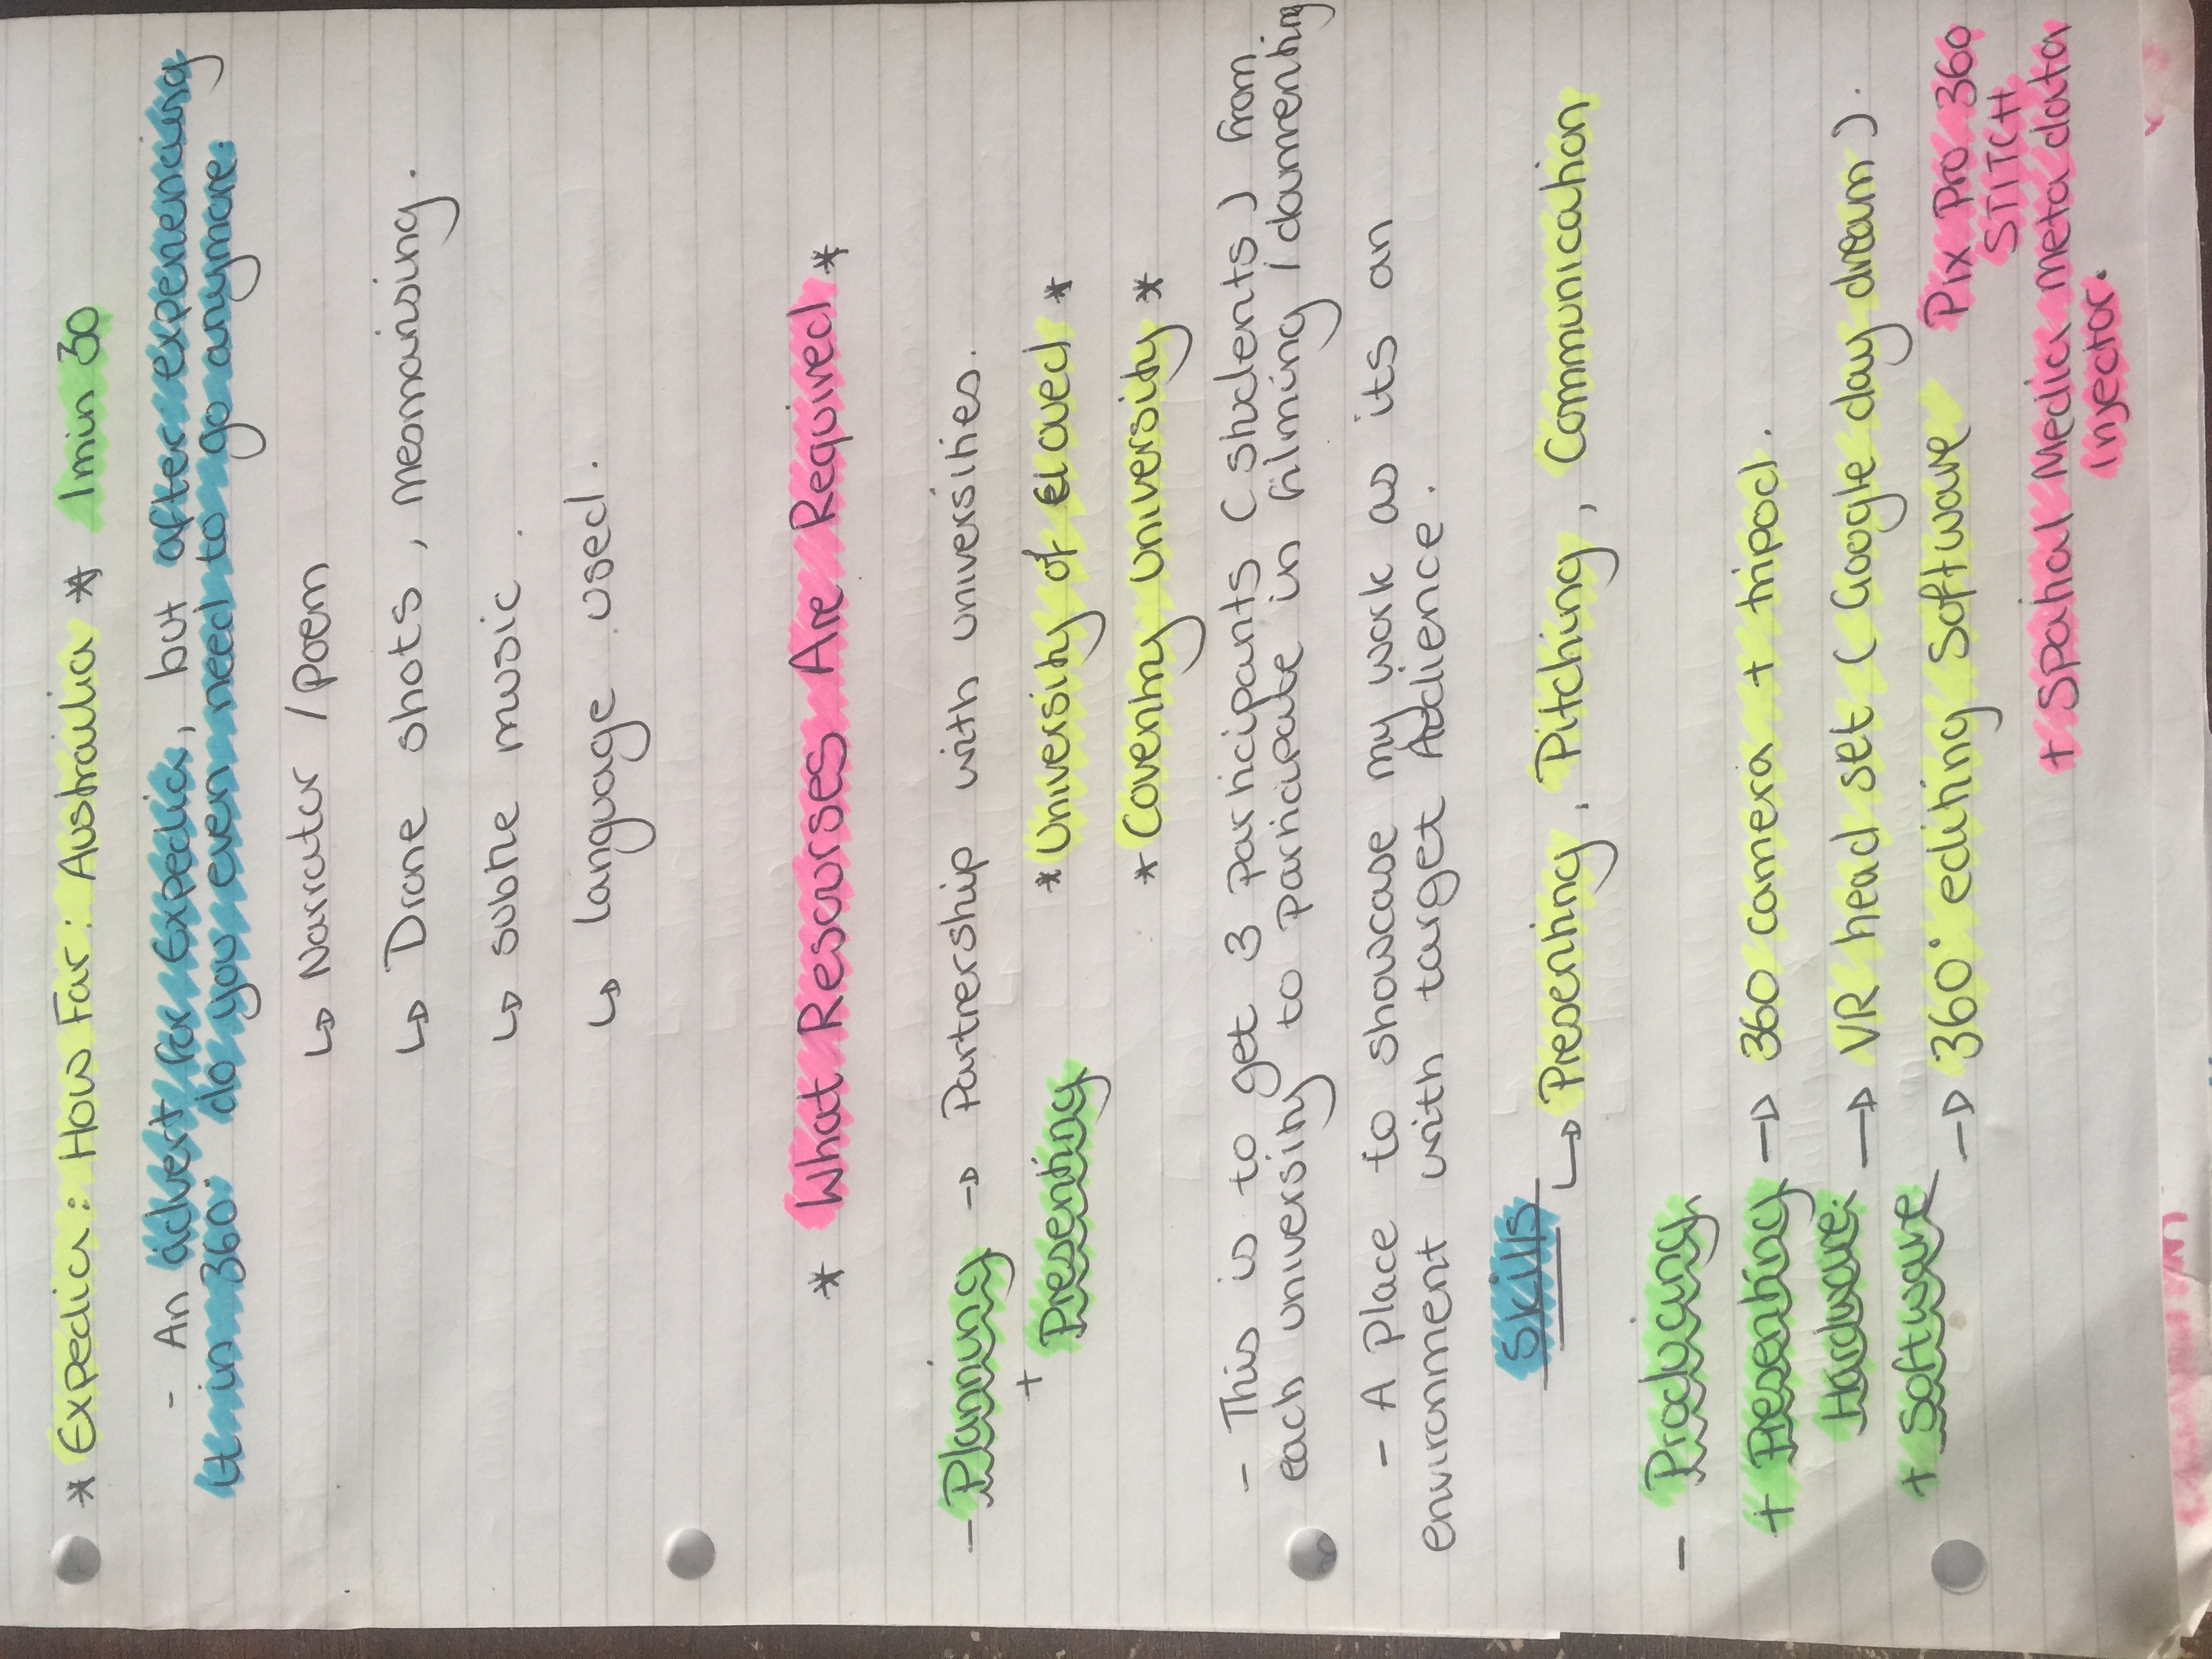 * Expedia: How Far: Austrailia * 1min 30
- An advert for Expedia, but after experiencing
it in 360° do you even need to go anymore.
↳ Narrator / Poem
↳ Drone shots, mesmorising.
↳ subtle music.
↳ language used.
* What Resourses Are Required *
- Planning → Partnership with universities.
+ Presenting * University of *
* Coventry University *
- This is to get 3 Participants (students) from
each university to participate in filming / documenting
- A place to showcase my work as its an
environment with target Audience.
Skills
↳ Presenting, Pitching, Communication
- Producing
+ Presenting → 360 camera + tripod.
Hardware: → VR head set (Google day dream).
+ Software → 360° editing software Pix Pro 360
STITCH
+ Spatial Media meta data
Injector.